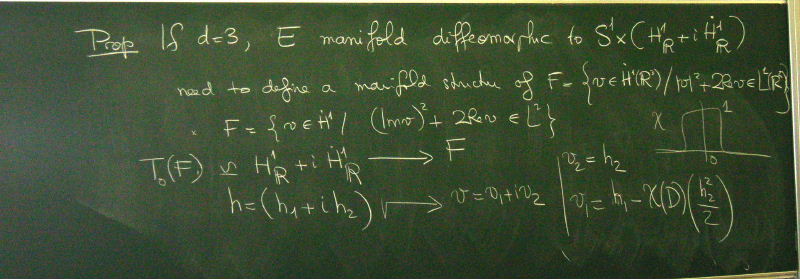 Prop If d=3, E manifold diffeomorphic to S¹×(H¹_ℝ + i Ḣ¹_ℝ)
need to define a manifold structure of F = {v ∈ Ḣ¹(ℝ³) / |v|² + 2Re v ∈ L²(ℝ³)}
F = {v ∈ Ḣ¹ / (Im v)² + 2Re v ∈ L²}
T₀(F) ≃ H¹_ℝ + i Ḣ¹_ℝ ⟶ F
h = (h₁ + i h₂) ⟼ v = v₁ + i v₂
v₂ = h₂
v₁ = h₁ − χ(D)(h₂²/2)
χ 1
0